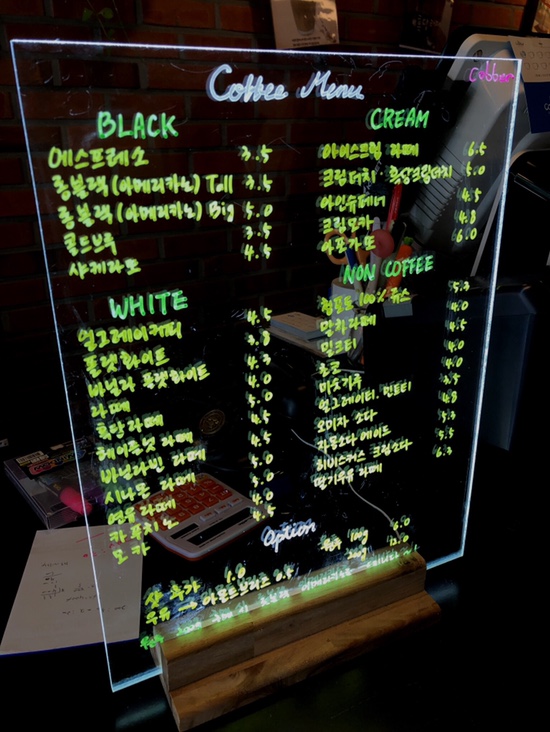 Coffee Menu
BLACK
에스프레소 3.5
롱블랙(아메리카노) Tall 3.5
롱블랙(아메리카노) Big 5.0
콜드브루 3.5
샤케라또 4.5
WHITE
얼그레이커피 4.5
플랫화이트 3.8
바닐라 플랫화이트 4.3
라떼 4.0
흑당라떼 5.0
헤이즐넛 라떼 4.5
바닐라빈 라떼 4.5
시나몬 라떼 5.0
연유라떼 5.0
카푸치노 4.0
모카 4.5
CREAM
아이스크림 라떼 6.5
크림더치 흑당크림더치 5.0
아인슈페너 4.5
크림모카 4.8
아포가또 6.0
NON COFFEE
청포도 100% 쥬스 5.3
말차라떼 4.0
밀크티 4.5
초코 4.0
마초가루 3.5
얼그레이티. 민트티 4.8
오미자 소다 5.3
자몽소다 에이드 5.5
히비스커스 크림소다 6.3
딸기우유 라떼
Option
샷 추가 1.0
우유 → 아몬드브리즈 0.5
원두 100g 6.0
200g